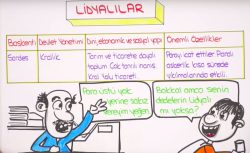 LİDYALILAR
Başkenti
Devlet Yönetimi
Dini, ekonomik ve sosyal yapı
Önemli Özellikler
Sardes
Krallık
Tarım ve ticarete dayalı
toplum Çok tanrılı inanış
Kral Yolu ticareti
Parayı icat ettiler Paralı
askerlik kısa sürede
yıkılmalarında etkili.
Para üstü yok
yerine sakız
vereyim yeğen
Bakkal amca senin
dedelerin Lidyalı
mı yoksa?